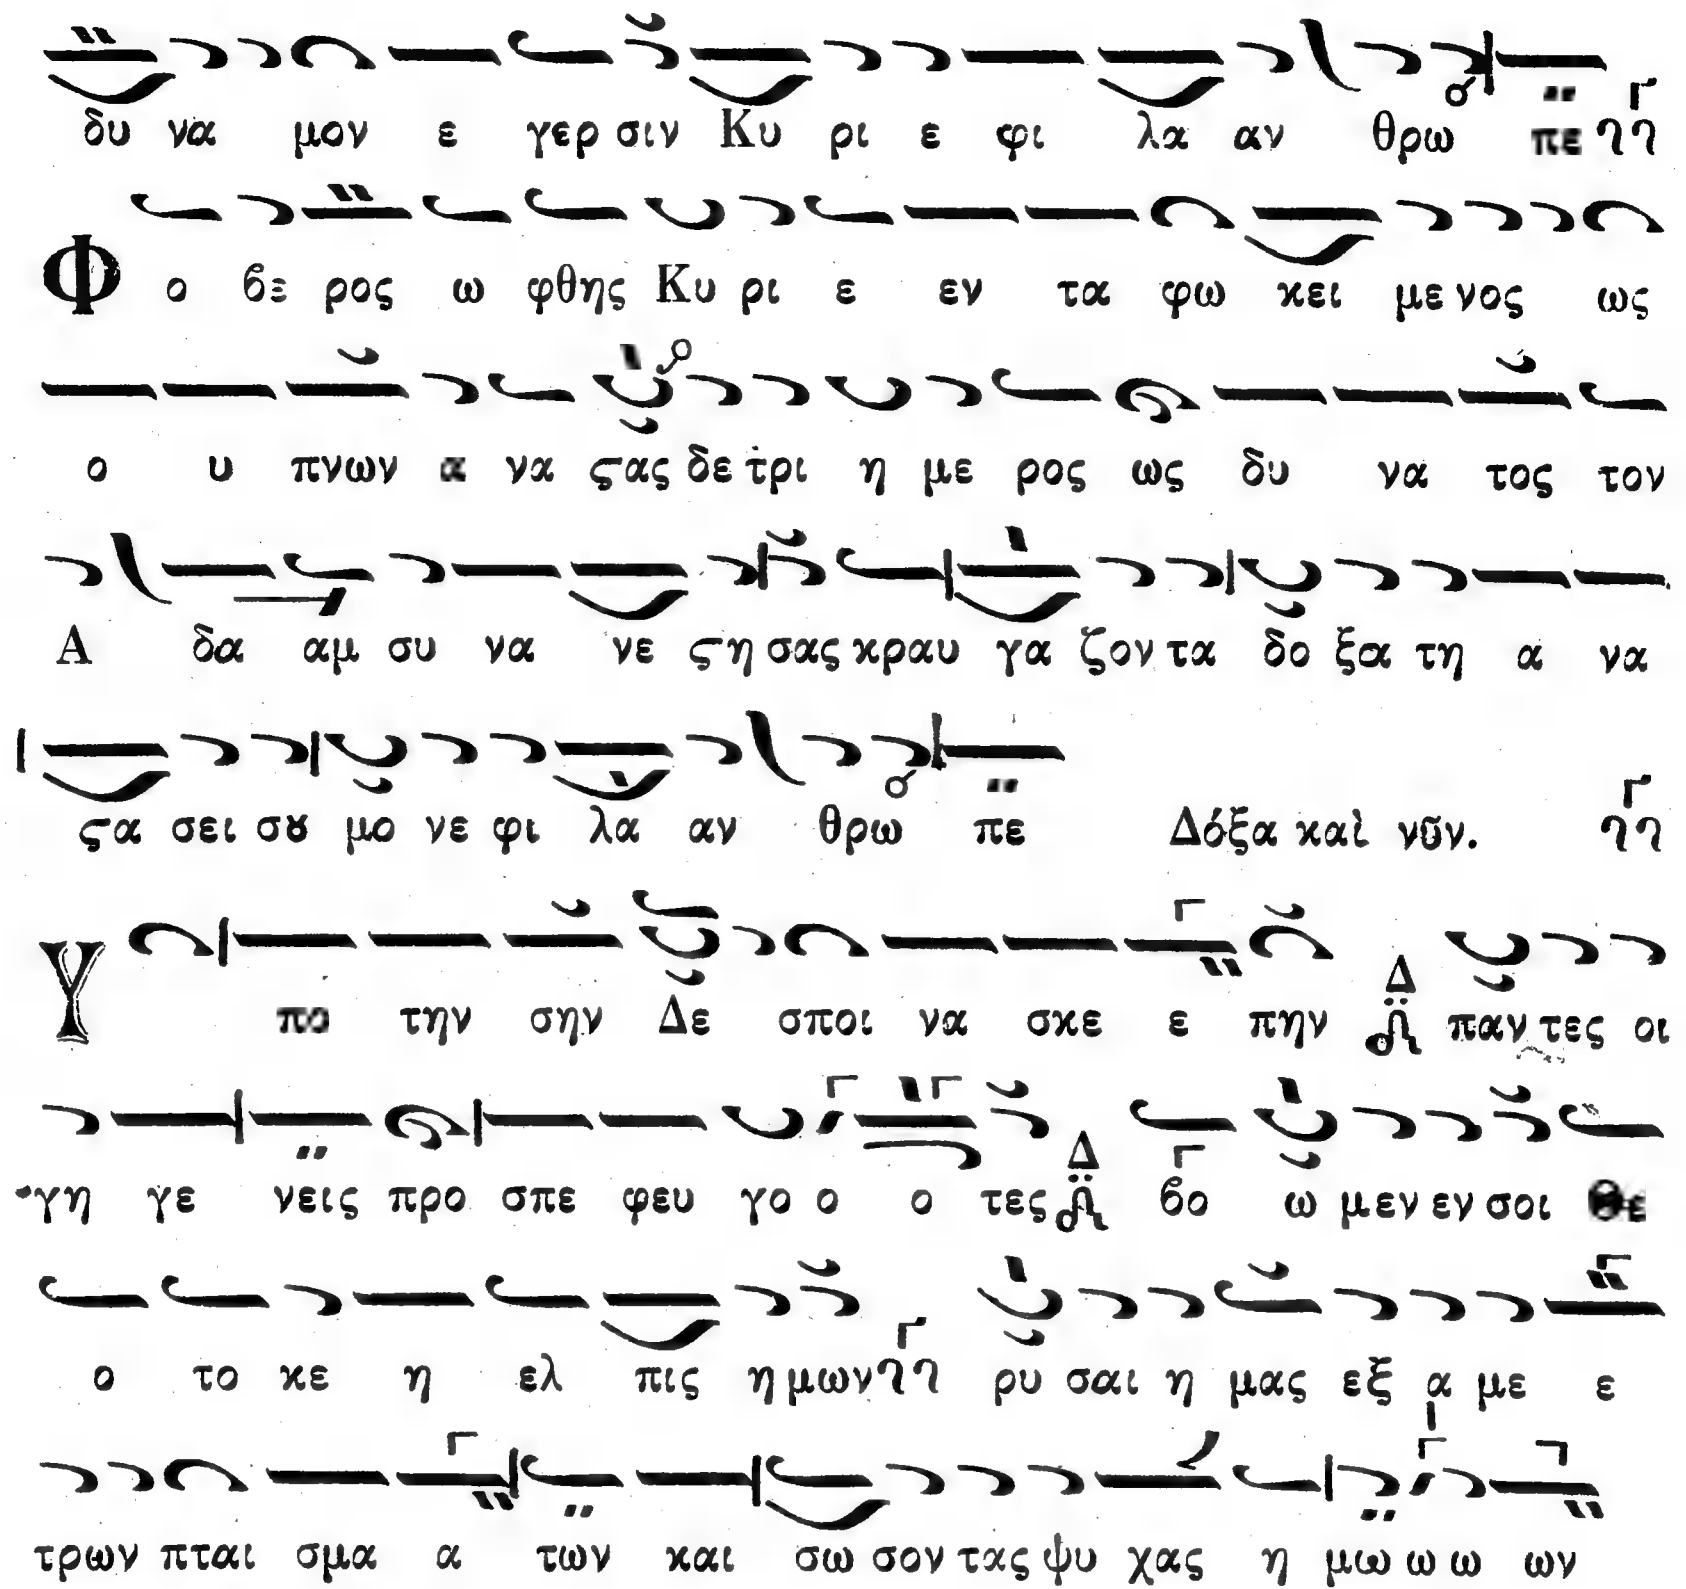 δυ να μον ε γερ σιν Κυ ρι ε φι λα αν θρω πε
Φ ο βε ρος ω φθης Κυ ρι ε εν τα φω κει με νος ως
ο υ πνων α να ϛας δε τρι η με ρος ως δυ να τος τον
Α δα αμ συ να νε ϛη σας κραυ γα ζον τα δο ξα τη α να
ϛα σει σȣ μο νε φι λα αν θρω πε Δόξα καὶ νῦν.
Υ πο την σην Δε σποι να σκε ε πην Δ παν τες οι
γη γε νεις προ σπε φευ γο ο ο τες Δ βο ω μεν εν σοι Θε
ο το κε η ελ πις η μων ρυ σαι η μας εξ α με ε
τρων πται σμα α των και σω σον τας ψυ χας η μω ω ω ων